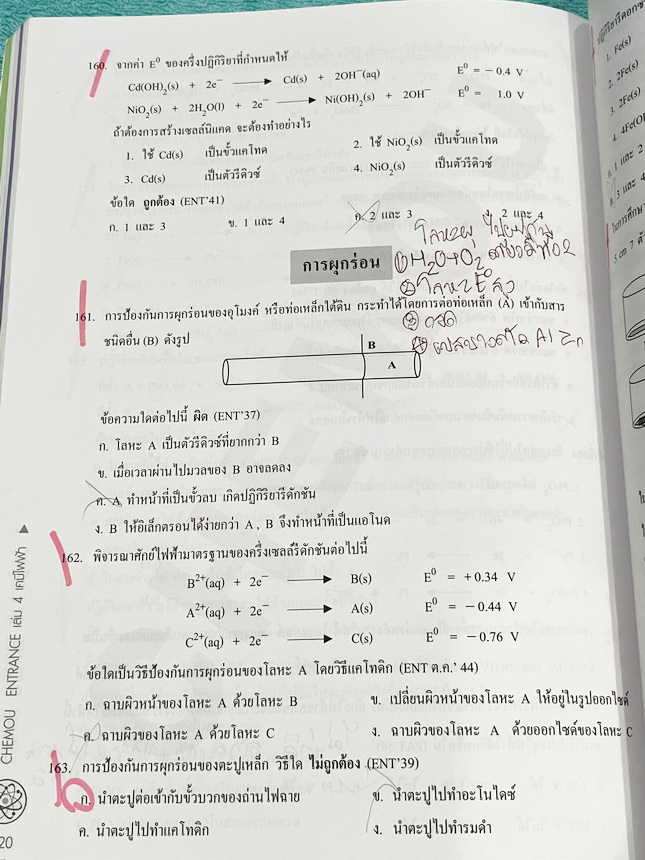 160. จากค่า E⁰ ของครึ่งปฏิกิริยาที่กำหนดให้
Cd(OH)₂(s) + 2e⁻ → Cd(s) + 2OH⁻(aq) E⁰ = – 0.4 V
NiO₂(s) + 2H₂O(l) + 2e⁻ → Ni(OH)₂(s) + 2OH⁻ E⁰ = 1.0 V
ถ้าต้องการสร้างเซลล์นิแคด จะต้องทำอย่างไร
1. ใช้ Cd(s) เป็นขั้วแคโทด 2. ใช้ NiO₂(s) เป็นขั้วแคโทด
3. Cd(s) เป็นตัวรีดิวซ์ 4. NiO₂(s) เป็นตัวรีดิวซ์
ข้อใด ถูกต้อง (ENT'41)
ก. 1 และ 3 ข. 1 และ 4 ค. 2 และ 3 ง. 2 และ 4
การผุกร่อน
H₂O+O₂
161. การป้องกันการผุกร่อนของอุโมงค์ หรือท่อเหล็กใต้ดิน กระทำได้โดยการต่อท่อเหล็ก (A) เข้ากับสาร
ชนิดอื่น (B) ดังรูป
B
A
ข้อความใดต่อไปนี้ ผิด (ENT'37)
ก. โลหะ A เป็นตัวรีดิวซ์ที่ยากกว่า B
ข. เมื่อเวลาผ่านไปมวลของ B อาจลดลง
ค. A ทำหน้าที่เป็นขั้วลบ เกิดปฏิกิริยารีดักชัน
ง. B ให้อิเล็กตรอนได้ง่ายกว่า A , B จึงทำหน้าที่เป็นแอโนด
162. พิจารณาศักย์ไฟฟ้ามาตรฐานของครึ่งเซลล์รีดักชันต่อไปนี้
B²⁺(aq) + 2e⁻ → B(s) E⁰ = +0.34 V
A²⁺(aq) + 2e⁻ → A(s) E⁰ = –0.44 V
C²⁺(aq) + 2e⁻ → C(s) E⁰ = –0.76 V
ข้อใดเป็นวิธีป้องกันการผุกร่อนของโลหะ A โดยวิธีแคโทดิก (ENT ต.ค.' 44)
ก. ฉาบผิวหน้าของโลหะ A ด้วยโลหะ B ข. เปลี่ยนผิวหน้าของโลหะ A ให้อยู่ในรูปออกไซด์
ค. ฉาบผิวของโลหะ A ด้วยโลหะ C ง. ฉาบผิวของโลหะ A ด้วยออกไซด์ของโลหะ C
163. การป้องกันการผุกร่อนของตะปูเหล็ก วิธีใด ไม่ถูกต้อง (ENT'39)
ก. นำตะปูต่อเข้ากับขั้วบวกของถ่านไฟฉาย ข. นำตะปูไปทำอะโนไดซ์
ค. นำตะปูไปทำแคโทดิก ง. นำตะปูไปทำรมดำ
CHEMOU ENTRANCE เล่ม 4 เคมีไฟฟ้า
20
1. Fe(s)
2. 2Fe(s)
3. 2Fe(s)